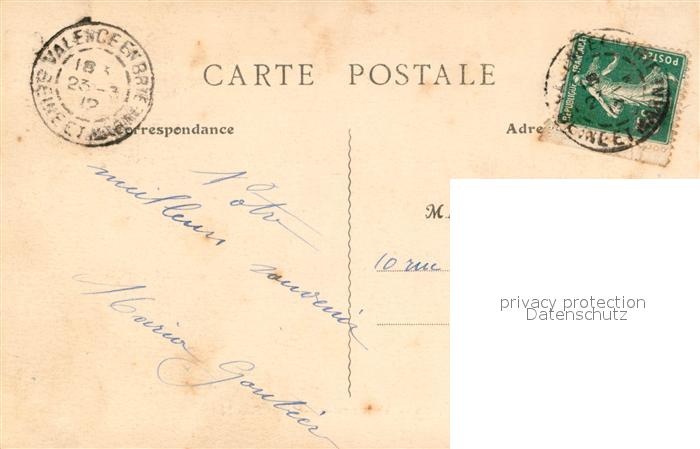 VALENCE EN BRIE
18
23 - 3
12
SEINE ET MARNE
CARTE POSTALE
REPUBLIQUE FRANÇAISE
POSTES
Correspondance
Adre
Votre
meilleur
souvenir
Maria Goutier
M
10 rue
privacy protection
Datenschutz